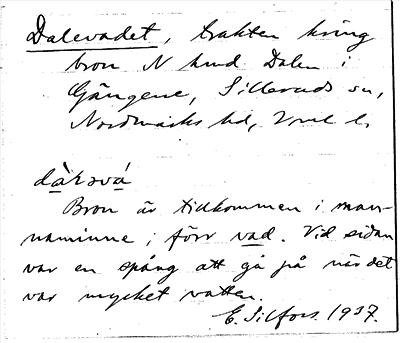 Dalevadet, trakten kring
bron N hmd Dalen i
Gängene, Silleruds sn,
Nordmarks hd, Vrml l.
Bron är tillkommen i man-
naminne; förr vad. Vid sidan
var en spång att gå på när det
var mycket vatten.
E. Silfors. 1937.